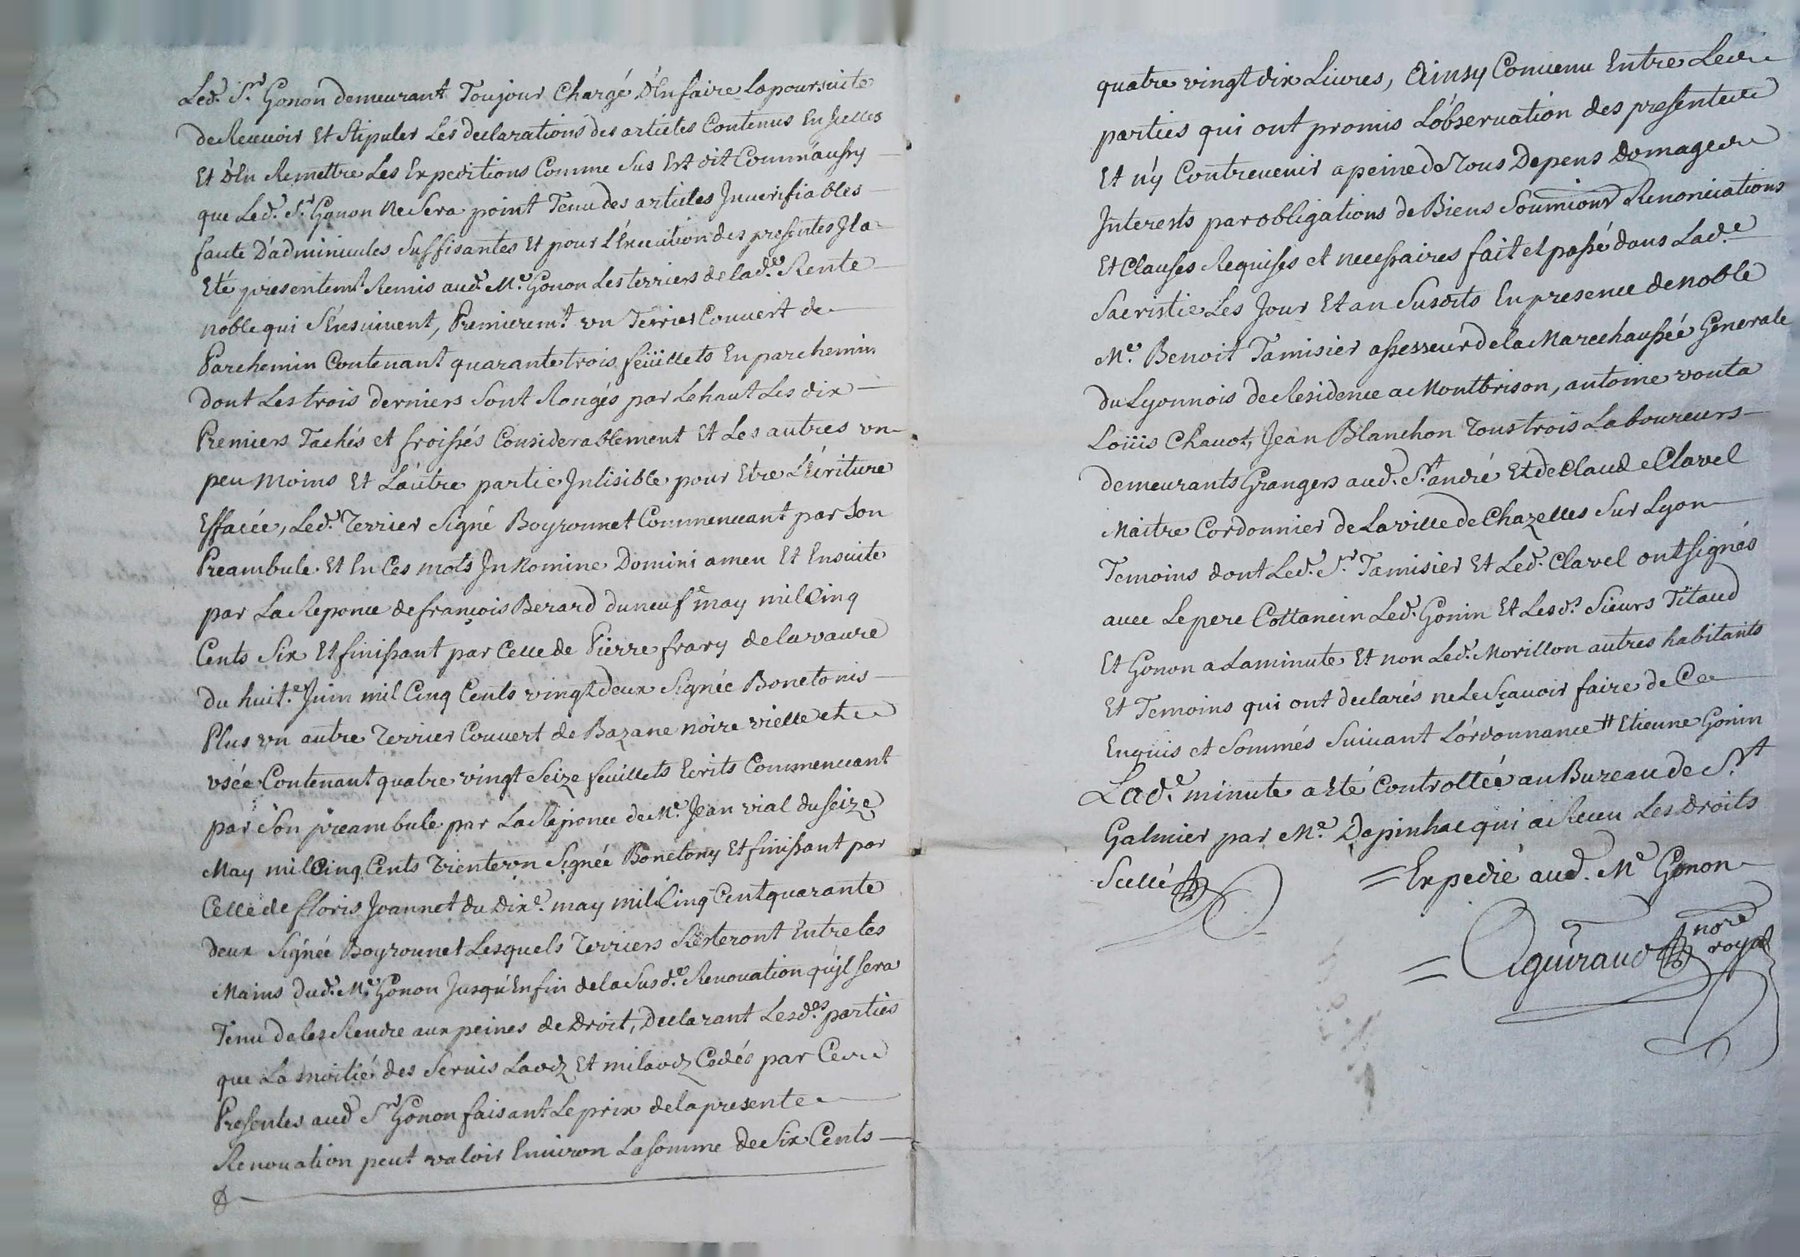 Led. Sr. Gonon demeurant Toujour Chargé D'en faire La poursuite
de Recuoir Et Stipuler Les declarations des articles Contenus En Jcelles
Et d'En Remettre Les Expeditions Comme Sus Est dit Comm'aussy
que Led. Sr. Gonon Ne Sera point Tenu des articles Jnuerifiables
faute D'adminicules Suffisantes Et pour L'Execution des presentes Jl a
Eté presentemt. Remis aud. Me. Gonon Les terriers de lade. Rente
noble qui S'ensuiuent, Premieremt. vn Terrier Couuert de
Parchemin Contenant quarante trois feüillets En parchemin
dont Les trois derniers Sont Rongés par Le haut Les dix
Premiers Tachés et froissés Considerablement Et Les autres vn
peu Moins Et L'autre partie Jnlisible pour Etre L'Ecriture
Effacée, Led. Terrier Signé Boyronnet Commenceant par Son
Preambule Et En Ces mots Jn Nomine Domini amen Et Ensuite
par La Reponce de françois Berard du neufe. may mil Cinq
Cents Six Et finissant par Celle de Pierre frary de la vaure
du huite. Juin mil Cinq Cents vingt deux Signée Bonetonis
Plus vn autre Terrier Couuert de Bazane noire vielle et
vsée Contenant quatre vingt Seize feuillets Ecrits Commenceant
par Son preambule par La Reponce de Me. Jean vial du Seize
May mil Cinq Cents Trente vn Signée Bonetony Et finissant par
Celle de floris Joannet du Dixe. may mil Cinq Cent quarante
deux Signée Boyronnet Lesquels Terriers Resteront Entre les
Mains dud. Me. Gonon Jusqu'En fin de la Susde. Renouation qu'jl sera
Tenu de les Rendre aux peines de Droit, Declarant Lesdes. parties
que La moitié des Seruis Laodz Et milaodz Cedés par Ces
Presentes aud. Sr. Gonon faisant Le prix de la presente
Renouation peut valoir Enuiron La somme de Six Cents
quatre vingt dix Liures, Ainsy Conuenu Entre Les
parties qui ont promis L'observation des presentes
Et n'y Contreuenir a peine de Tous Depens Domages
Interests par obligations de Biens Soumions Renonciations
Et Clauses Requises et necessaires fait et passé dans Lade.
Sacristie Les Jour Et an Susdits En presence de noble
Me. Benoit Tamisier assesseur de la Marechaussée Generale
du Lyonnois de Residence a Montbrison, antoine vouta
Loüis Chauot, Jean Blanchon Tous trois Laboureurs
demeurants Grangers aud. St. andré Et de Claude Clavel
Maitre Cordonnier de La ville de Chazelles Sur Lyon
Temoins dont Led. Sr. Tamisier Et Led. Clavel ont signés
auec Le pere Cottancin Led. Gonin Et Lesds. Sieurs Titaud
Et Gonon a La minute Et non Led. Morillon autres habitants
Et Temoins qui ont declarés ne Le Sçauoir faire de Ce
Enquis et Sommés Suiuant L'ordonnance # Etienne Gonin
Lade. minute a Eté Controllée au Bureau de St.
Galmier par Me. Dapinhac qui a Receu Les Droits
Scellé
= Expedié aud. Me Gonon
= Aguiraud nore royal